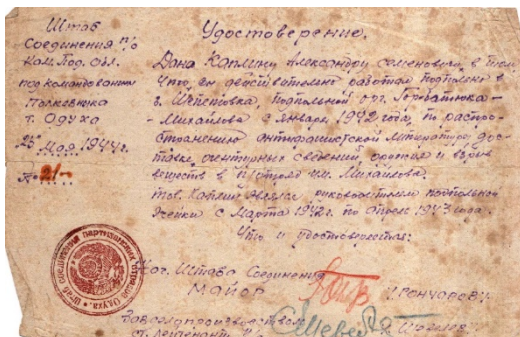 Штаб
Соединения п/о
Кам. Под. Обл.
под командованием
Полковника
т. Одуха
25 Мая 1944г.
№ 21
Удостоверение.
Дана Каплину Александру Семеновичу, в том,
что он действительно работал подпольно в
г. Шепетовка, подпольной орг. Горбатюка-
-Михайлова с января 1942 года, по распро-
странению антифашистской литературы, дос-
тавке, агентурных сведений, оружия и взрыв
веществ в п/отряд им. Михайлова.
тов. Каплин являлся руководителем подпольной
ячейки с Марта 1942г. по апрель 1943 года.
Что и удостоверяется:
Штаб соединения партизанских отрядов Одуха
Нач. Штаба Соединения
Майор
/Гончаров/
Завделопроизводством
ст. лейтенант